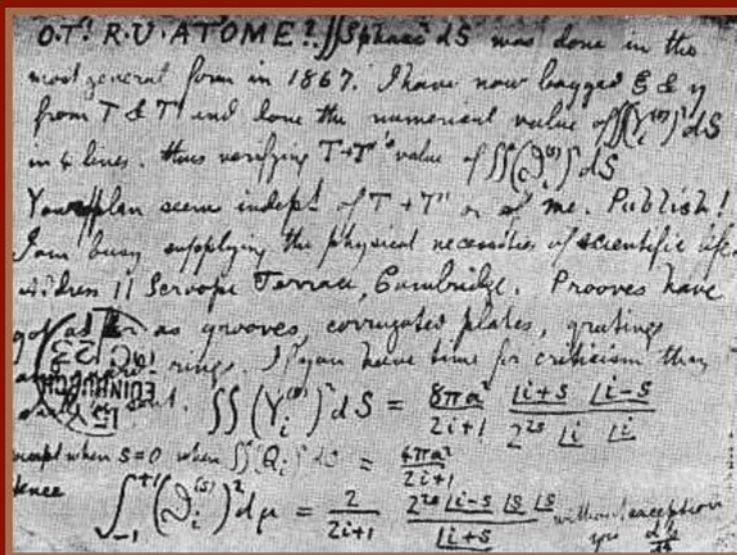 O.T! R.U. ATOME? ∬Spharc² dS was done in the
most general form in 1867. I have now bagged ξ & η
from T & T' and done the numerical value of ∬(Y_i^(s))² dS
in 4 lines. thus verifying T+T''s value of ∬(ϑ_i^(s))² dS
Your plan seems indept of T + T' or of me. Publish!
I am busy supplying the physical necessities of scientific life.
Address 11 Scroope Terrace, Cambridge. Prooves have
got as far as grooves, corrugated plates, gratings
rings. If you have time for criticism then
sent. ∬(Y_i^(s))² dS = 8πa²/(2i+1) · |i+s |i-s / (2^2s |i |i)
except when s=0 when ∬(Q_i)² dS = 4πa²/(2i+1)
hence ∫_-1^+1 (ϑ_i^(s))² dμ = 2/(2i+1) · 2^2s |i-s |s |s / |i+s without exception
EDINBURGH